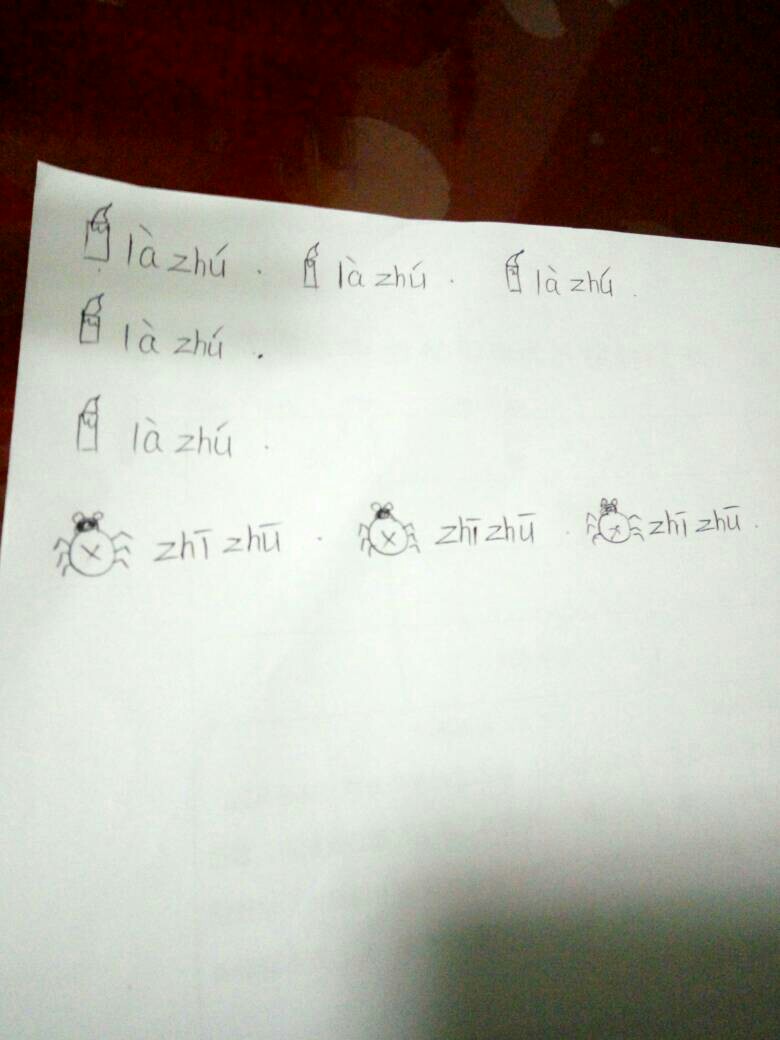 là zhú . là zhú . là zhú .
là zhú .
là zhú .
zhī zhū . zhī zhū . zhī zhū .